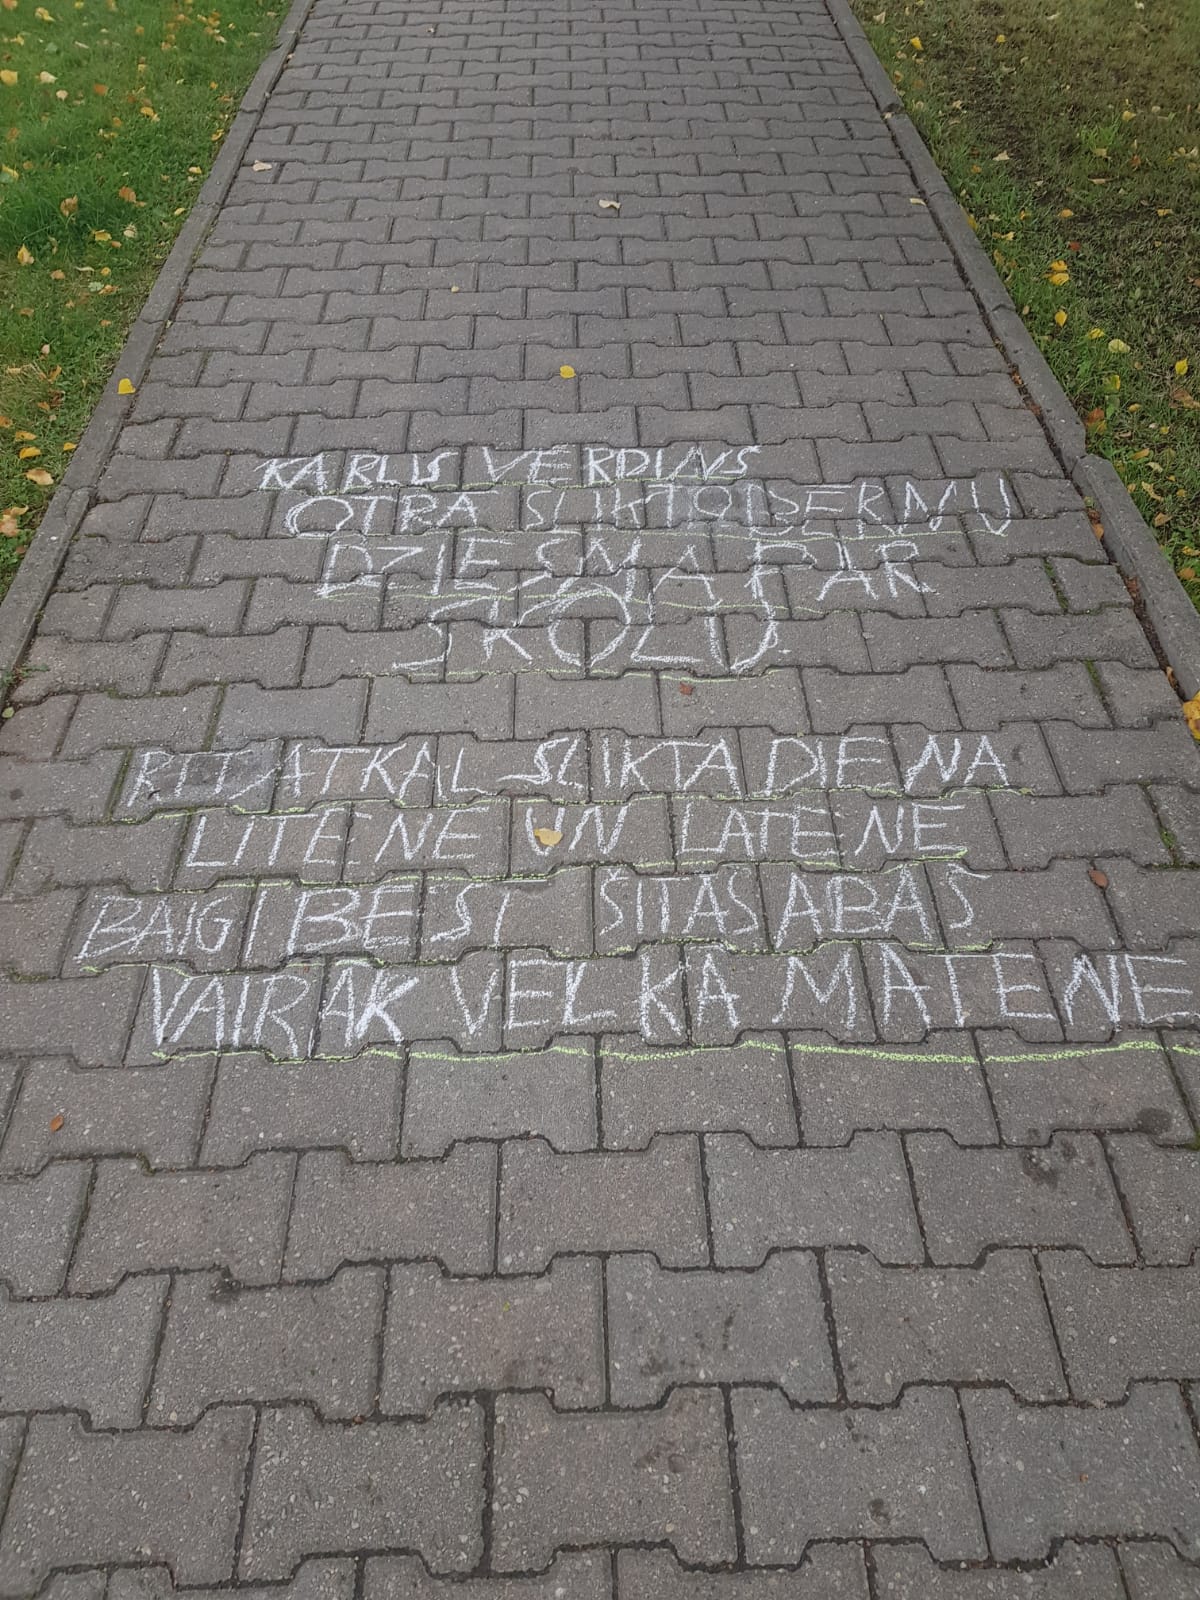 KARLIS VERDINS
OTRA SLIKTO BERNU
DZIESMA PAR
SKOLU
RIT ATKAL SLIKTA DIENA
LITENE UN LATENE
BAIGI BEST ŠITAS ABAS
VAIRAK VELKA MATENE